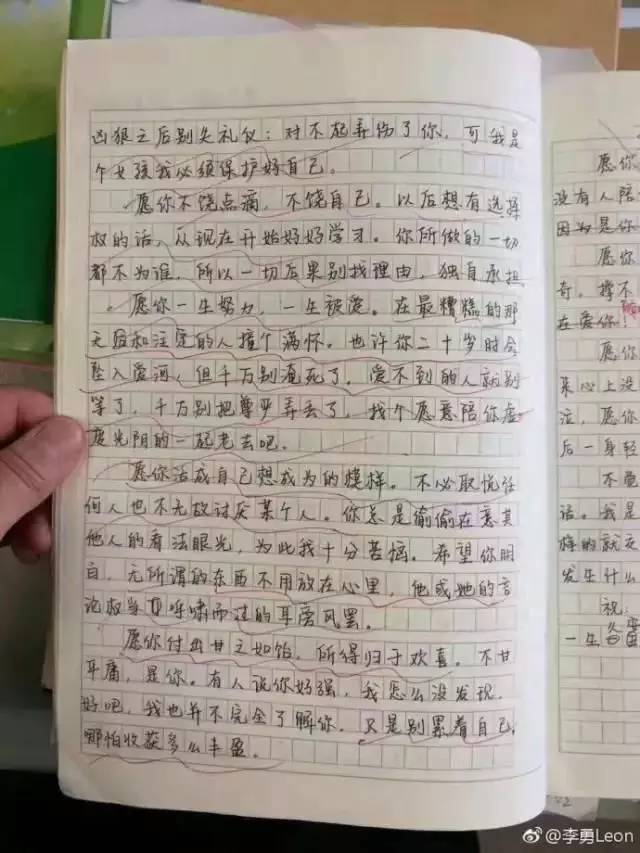 凶狠之后别失礼仪：对不起弄伤了你，可我是
个女孩我必须保护好自己。
愿你不饶点病，不饶自己。以后想有选择
权的话，从现在开始好好学习。你所做的一切
都不为谁，所以一切后果别找理由，独自承担
愿你一生努力，一生被爱。在最糟糕的那
天后和注定的人撞个满怀。也许你二十岁时会
坠入爱河，但千万别淹死了，爱不到的人就别
等了，千万别把尊严弄丢了，找个愿意陪你虚
度光阴的一起老去吧。
愿你活成自己想成为的模样。不必取悦任
何人也不无故讨厌某个人。你总是偷偷在意其
他人的看法眼光，为此我十分苦恼。希望你明
白，无所谓的东西不用放在心里，他或她的言
论权当耳呼啸而过的耳旁风罢。
愿你付出甘之如饴，所得归于欢喜。不甘
平庸，是你。有人说你好强，我怎么没发现，
好吧，我也并不完全了解你，只是别累着自己，
哪怕收获多么丰盈。
愿你
没有人陪
因为是你
愿你
奇，撑不
在爱你！
愿你
来心上没
泣，愿你
后一身轻
不觉
话。我是
旅的就交
发生什么
祝：
一生
@李勇Leon